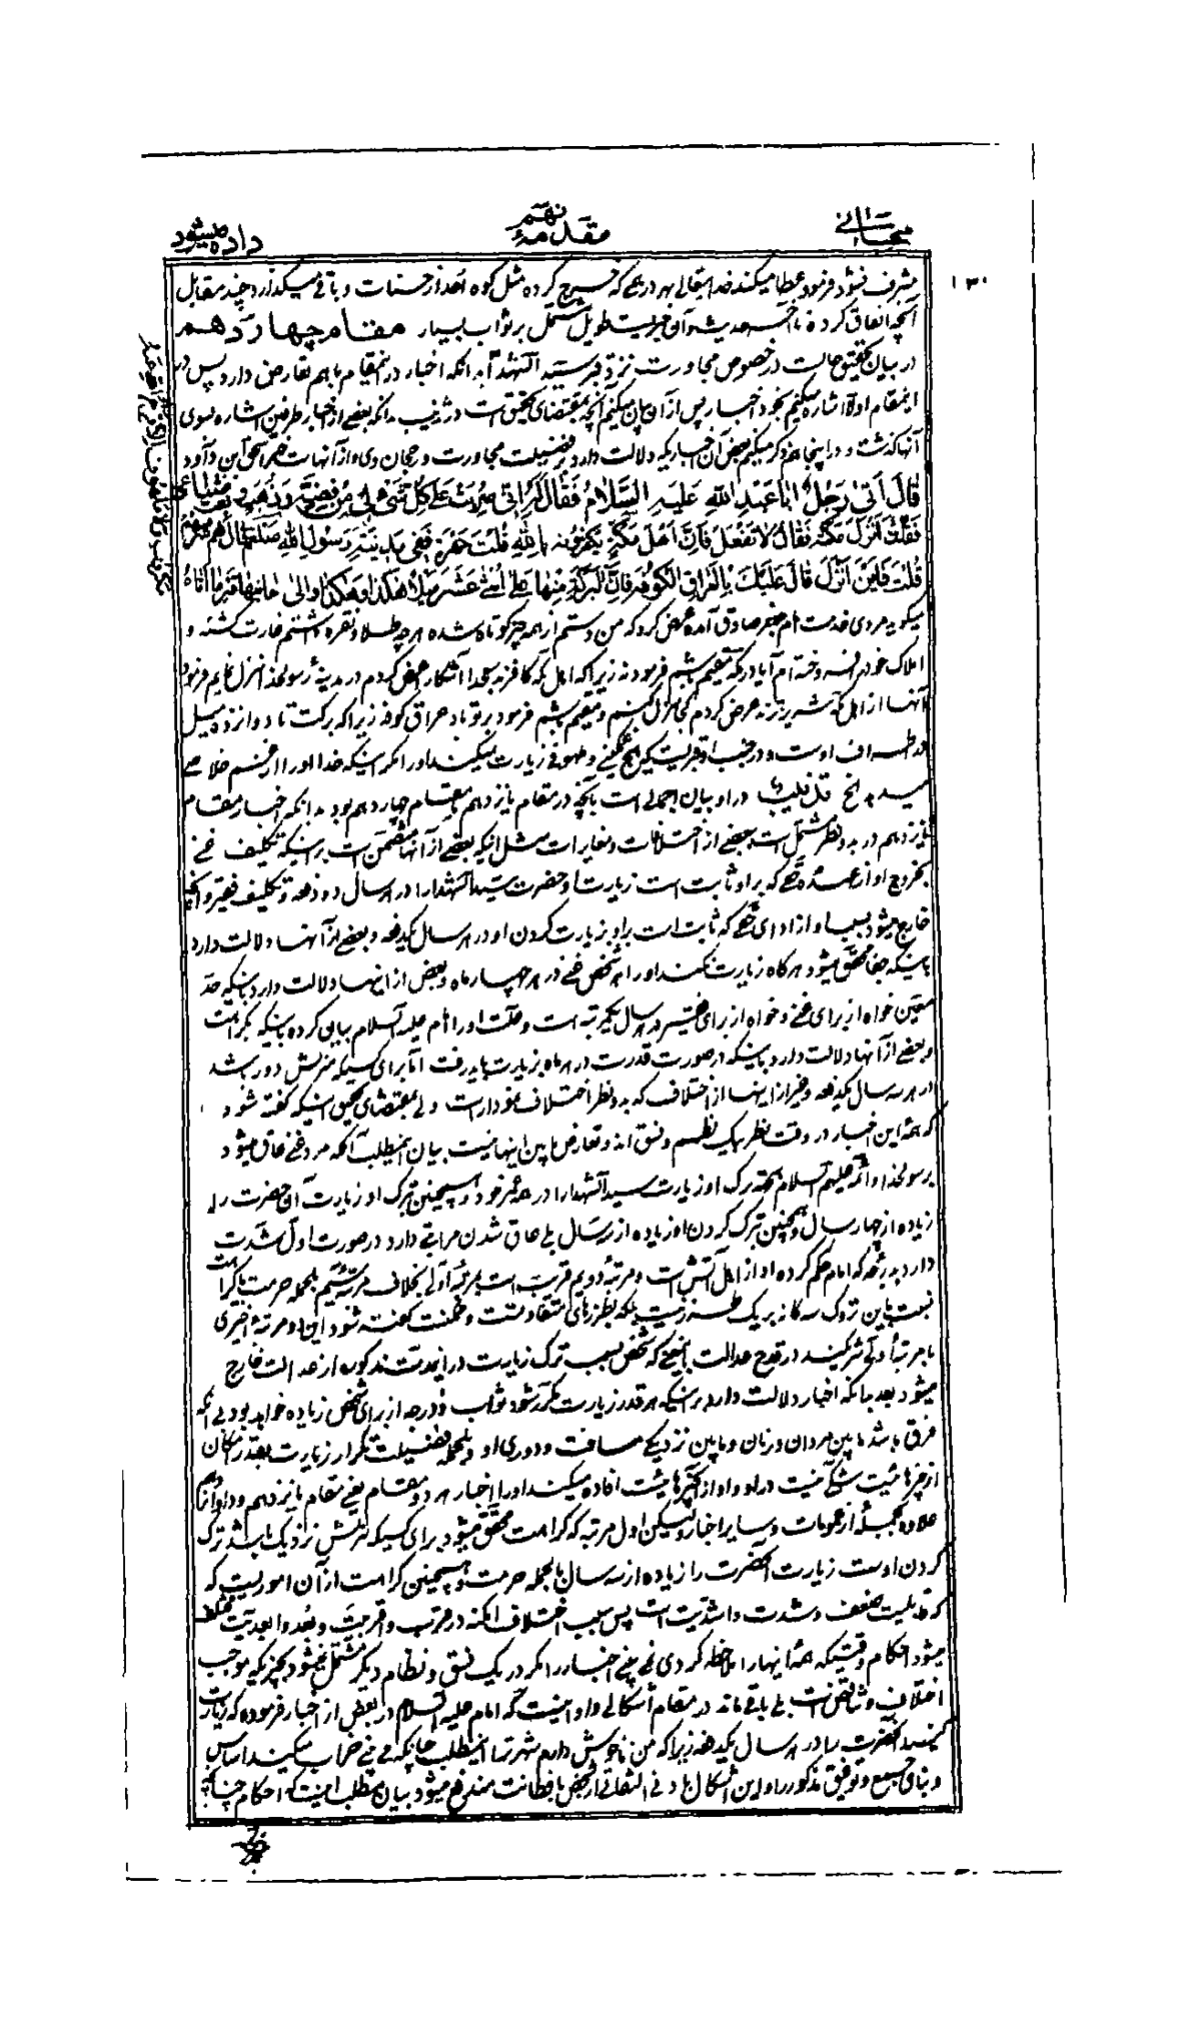 مقدمهٔ نهم
داده میشود
۱۳۰
مشرف نشود فرمود عطا میکند خدایتعالی بهر درهمی که خرج کرده مثل کوه احد از حسنات و باقی میگذارد چند مقابل
آنچه انفاق کرده تا آخر حدیث و آن خبریست طویل مشتمل بر ثواب بسیار مقام چهاردهم
در بیان تحقیق حالست در خصوص مجاورت نزد قبر سید الشهدا بدانکه اخبار در اینمقام با هم تعارض دارد پس در
اینمقام اولا اشاره میکنیم بخود اخبار پس از آن بیان میکنیم آنچه بمقتضای تحقیق است در تذنیب بدانکه بعضی از اخبار طرفین اشاره بسوی
آنها گذشت و در اینجا هم ذکر میکنیم بعض آن اخباریکه دلالت دارد بر فضیلت مجاورت و رجحان وی و از آنهاست خبر اسحق ابن داود
قال اتی رجل ابا عبد الله علیه السلام فقال له انی ضربت علی کل شیء لی من فضة و ذهب و بعت ضیاعی
فقلت انزل مکة فقال لا تفعل فان اهل مکة یکفرون بالله قلت جهرة ففی مدینة رسول الله صلعم قال هم شر منهم
قلت فاین انزل قال علیک بالعراق الکوفة فان البرکة منها علی اثنی عشر میلا هکذا و هکذا و الی جانبها قبر ما اتاه
میگوید مردی خدمت امام جعفر صادق آمده عرض کرد که من دستم از همه چیز کوتاه شده هر چه طلا و نقره داشتم غارت گشته و
املاک خود را فروخته ام آیا در مکه مقیم بشم فرمود نه زیرا که اهل مکه کافرند بخدا آشکارا عرض کردم در مدینهٔ رسولخدا منزل نمایم فرمود
آنها از اهل مکه شریرترند عرض کردم کجا منزل کنم و مقیم بشم فرمود بر تو باد عراق کوفه زیرا که برکت تا دوازده میل
در اطراف اوست و در جنب او قبریست که هیچ غمگینی و ملهوفی زیارت نمیکند او را مگر اینکه خدا او را از غم خلاصی
میدهد الخ تذنیب در او بیان اجمالی است بآنچه در مقام یازدهم تا مقام چهاردهم بود بدانکه اخبار مقام
یازدهم در بدو نظر مشتمل است بعضی از اختلافات و مغایرات مثل اینکه بعضی از آنها متضمن است بر اینکه تکلیف غنی
بخروج او از عهدهٔ حقی که بر او ثابت است زیارت او حضرت سید الشهدا را در هر سال دو دفعه و تکلیف فقیر و آنچه
خارج میشود بسبب او از ادای حقی که ثابت است بر او زیارت کردن او در هر سال یکدفعه و بعضی از آنها دلالت دارد
باینکه جفا محقق میشود هرگاه زیارت نکند او را هر شخص غنی در هر چهار ماه و بعض از اینها دلالت دارد باینکه حد
معین خواه از برای غنی و خواه از برای فقیر در هر سال یکمرتبه است و علت او را امام علیه السلام بیان کرده باینکه
و بعضی از آنها دلالت دارد باینکه در صورت قدرت در هر ماه بزیارت باید رفت اما برای کسیکه منزلش دور باشد
در هر سه سال یکدفعه و غیر از اینها از اختلاف که بدو نظر اختلاف نمودار است ولی بمقتضای تحقیق اینکه گفته شود
که همهٔ این اخبار در وقت نظر بیک نظم و نسق اند و تعارض مابین اینها نیست بیان اینمطلب آنکه مرد غنی عاق میشود
برسولخدا و ائمه علیهم السلام بجهة ترک او زیارت سید الشهدا را در همهٔ عمر خود و همچنین ترک او زیارت آن حضرت را
زیاده از چهار سال و همچنین ترک کردن او زیاده از سه سال بلی عاق شدن مراتبی دارد در صورت اول شدت
دارد بدرجهٔ که امام حکم کرده او از اهل آتش است و مرتبهٔ دویم قریب است بمرتبهٔ اولی بخلاف مرتبهٔ سیم بلجمله حرمت یا کراهت
نسبت باین تروک سه گانه بر یک طرز نیست بلکه بطرزهای متفاوتست و ممکنست گفته شود این دو مرتبهٔ اخیری
با مرتبهٔ اولی شریکند در قدح عدالت باینمعنی که شخص بسبب ترک زیارت در اینمدت مذکوره از عدالت خارج
میشود بعد بدانکه اخبار دلالت دارد بر اینکه هر قدر زیارت مکرر شود ثواب و درجه از برای شخص زیاده خواهد بود بی آنکه
فرق باشد مابین مردان و زنان و مابین نزدیکی مسافت و دوری او بلجمله فضیلت تکرار زیارت بقدر امکان
از چیزهائیست شکی نیست در او و او از چیزهائیست افاده میکند او را اخبار هر دو مقام یعنی مقام یازدهم و دوازدهم
علاوه بجملهٔ از عمومات و سایر اخبار ولیکن اول مرتبه که کراهت محقق میشود برای کسیکه منزلش نزدیک باشد ترک
کردن اوست زیارت آنحضرت را زیاده از سه سال بالجمله حرمت و همچنین کراهت از آن امور یست که
که قابلیت ضعف و شدت و اشدیت است پس بسبب اختلاف امکنه در قرب و اقربیت و بعد و ابعدیت مختلف
میشود احکام وقتیکه همهٔ اینها را ملاحظه کردی نمی بینی اخبار را مگر در یک نسق و نظام دیگر مشتمل نمیشود بچیزیکه موجب
اختلاف و تناقض است بلی باقی ماند در مقام اشکالی و او اینست که امام علیه السلام در بعض از اخبار فرموده که زیارت
کنید آنحضرت را در هر سال یکدفعه زیرا که من ناخوش دارم شهرت را اینمطلب چنانکه می بینی خراب میکند اساس
و بنای جمع و توفیق مذکور را و این اشکال باد نی التفاتی از شخص با فطانت مندفع میشود بیان مطلب اینست که احکام چنانچه